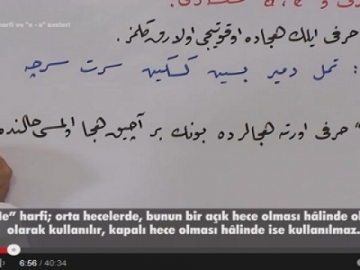 حرفی ایلك هجاده اوقوتیجی اولارق كلمز.
تمل دمیر بسین كسكین سرت سرچه
" حرفی اورته هجالرده بونك بر آچیق هجا اولمسی حالنده
le" harfi; orta hecelerde, bunun bir açık hece olması hâlinde ol
olarak kullanılır, kapalı hece olması hâlinde ise kullanılmaz.
6:56 / 40:34